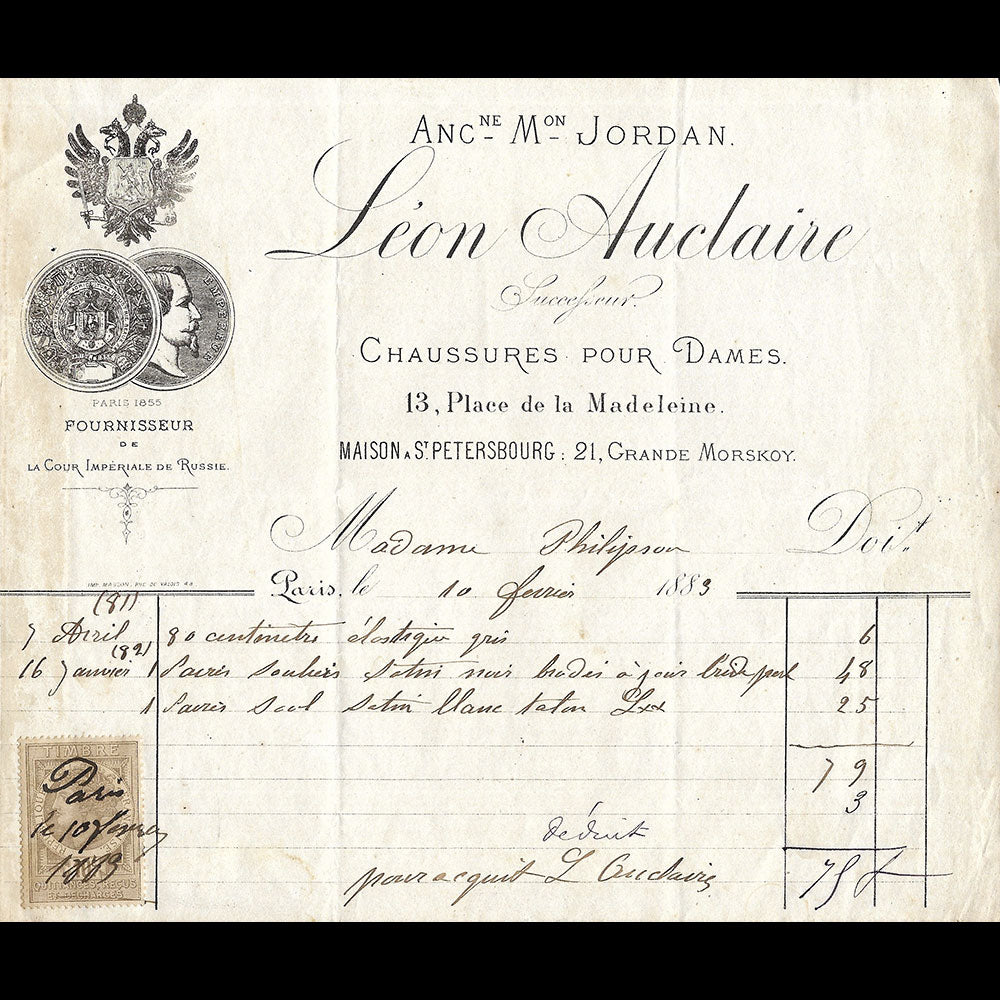 ANC^NE M^ON JORDAN.
Léon Auclaire
Successeur.
CHAUSSURES POUR DAMES.
13, Place de la Madeleine.
MAISON A S^T. PETERSBOURG : 21, GRANDE MORSKOY.
EMPEREUR
PARIS 1855
FOURNISSEUR
DE
LA COUR IMPÉRIALE DE RUSSIE.
Madame Philipson Doit
IMP. MASSON, RUE DE VALOIS
Paris, le 10 fevrier 1883
(81)
7 Avril 80 centimetre élastique gris 6
(82)
16 Janvier 1 Paires souliers satin noir brodés à jour 48
1 Paires soul satin blanc talon Lxx 25
79
3
déduit
pour acquit L Auclaire 75 f
TIMBRE
Paris
le 10 fevrier
1883
QUITTANCES, REÇUS
ET DÉCHARGES